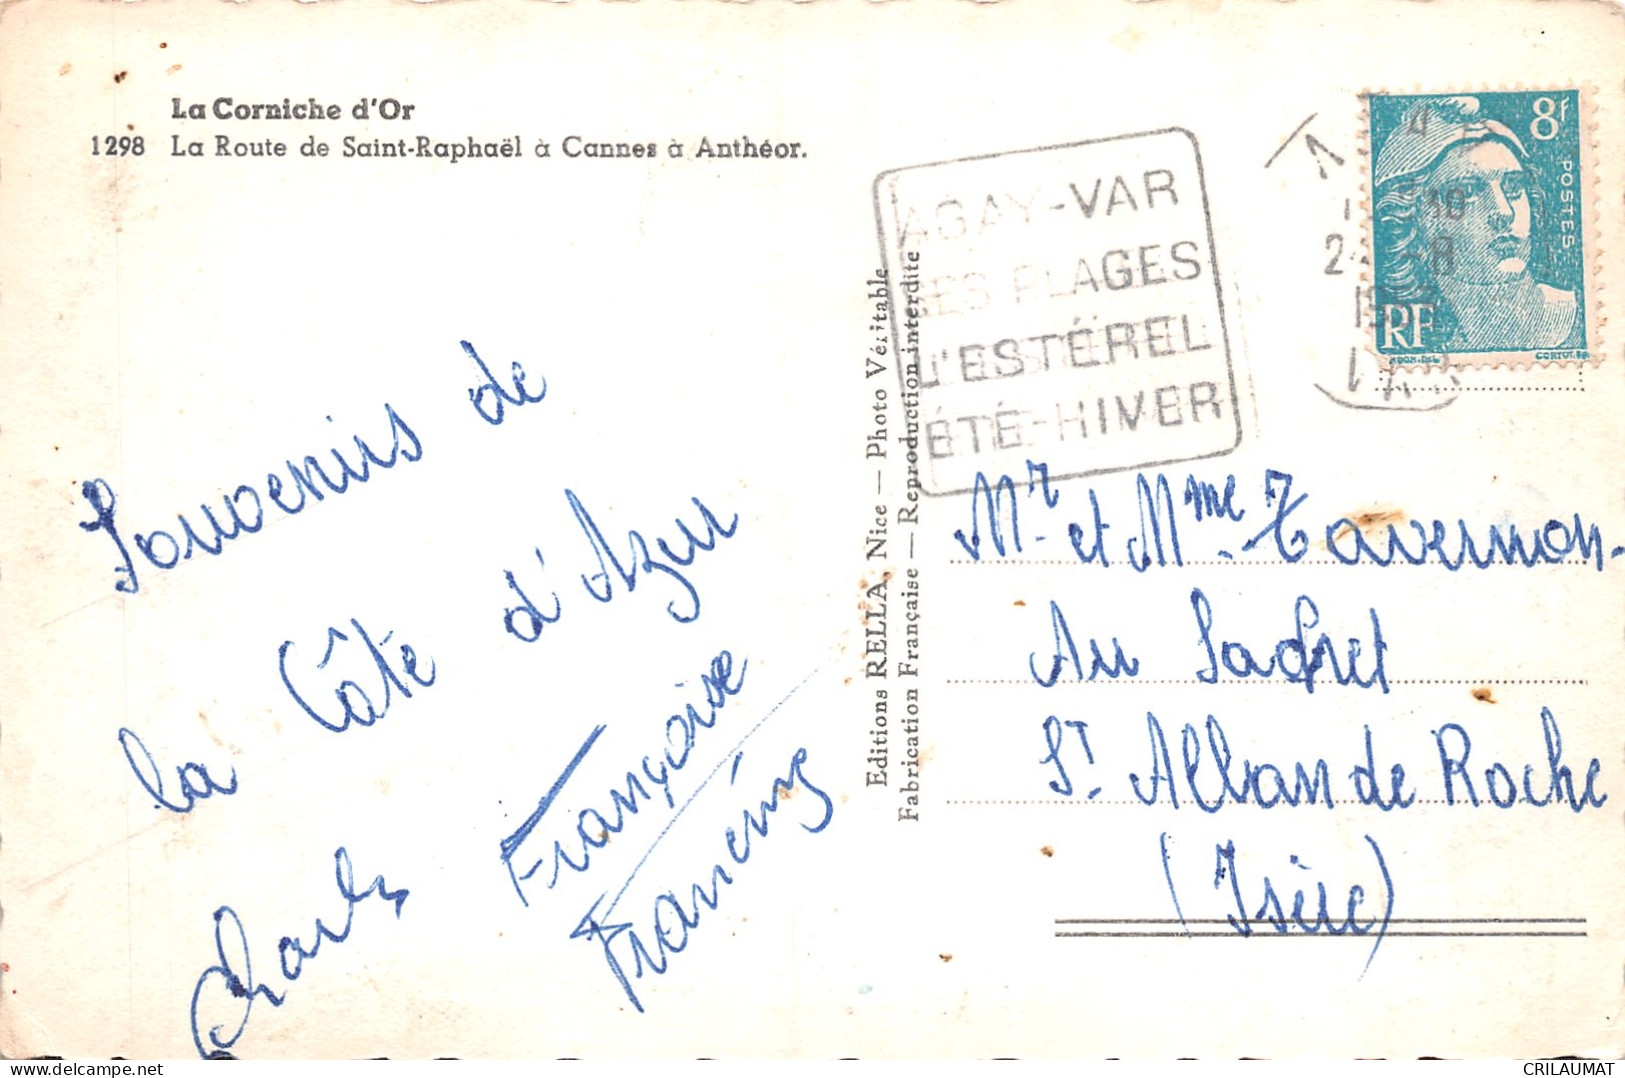 La Corniche d'Or
1298 La Route de Saint-Raphaël à Cannes à Anthéor.
Souvenirs de
la Côte d'Azur
Charles Françoise
Francine
Editions RELLA, Nice — Photo Véritable
Fabrication Française — Reproduction interdite
AGAY-VAR
SES PLAGES
L'ESTÉREL
ÉTÉ-HIVER
8F
POSTES
RF
CORTOT
Mr. et Mme. Tavernon
Au
St. Alban de Roche
(Isère)
CRILAUMAT